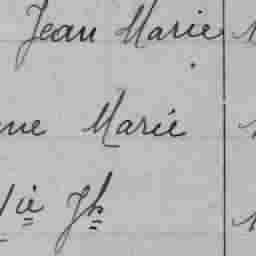 Jean Marie
ne Marie
ie Jh